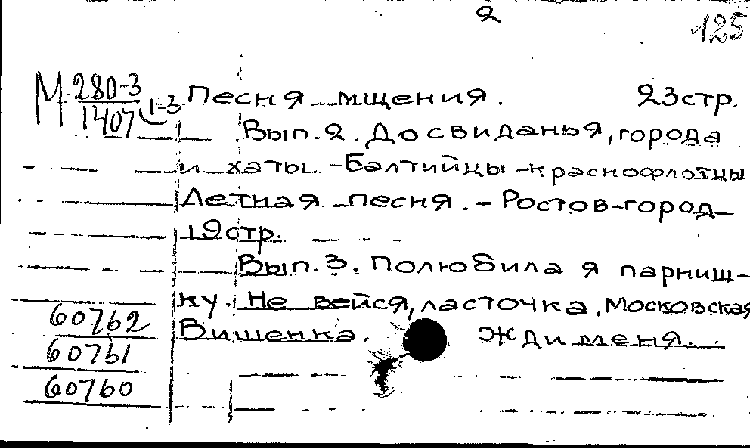 2
125
М 280-3
1407 1-3
Песня мщения. 23стр.
Вып.2. До свиданья, города
и хаты. - Балтийцы - краснофлотцы
Летная песня. - Ростов-город-
19стр.
Вып.3. Полюбила я парниш-
ку. Не вейся, ласточка, Московская
Вишенка. Жди меня.
60762
60761
60760